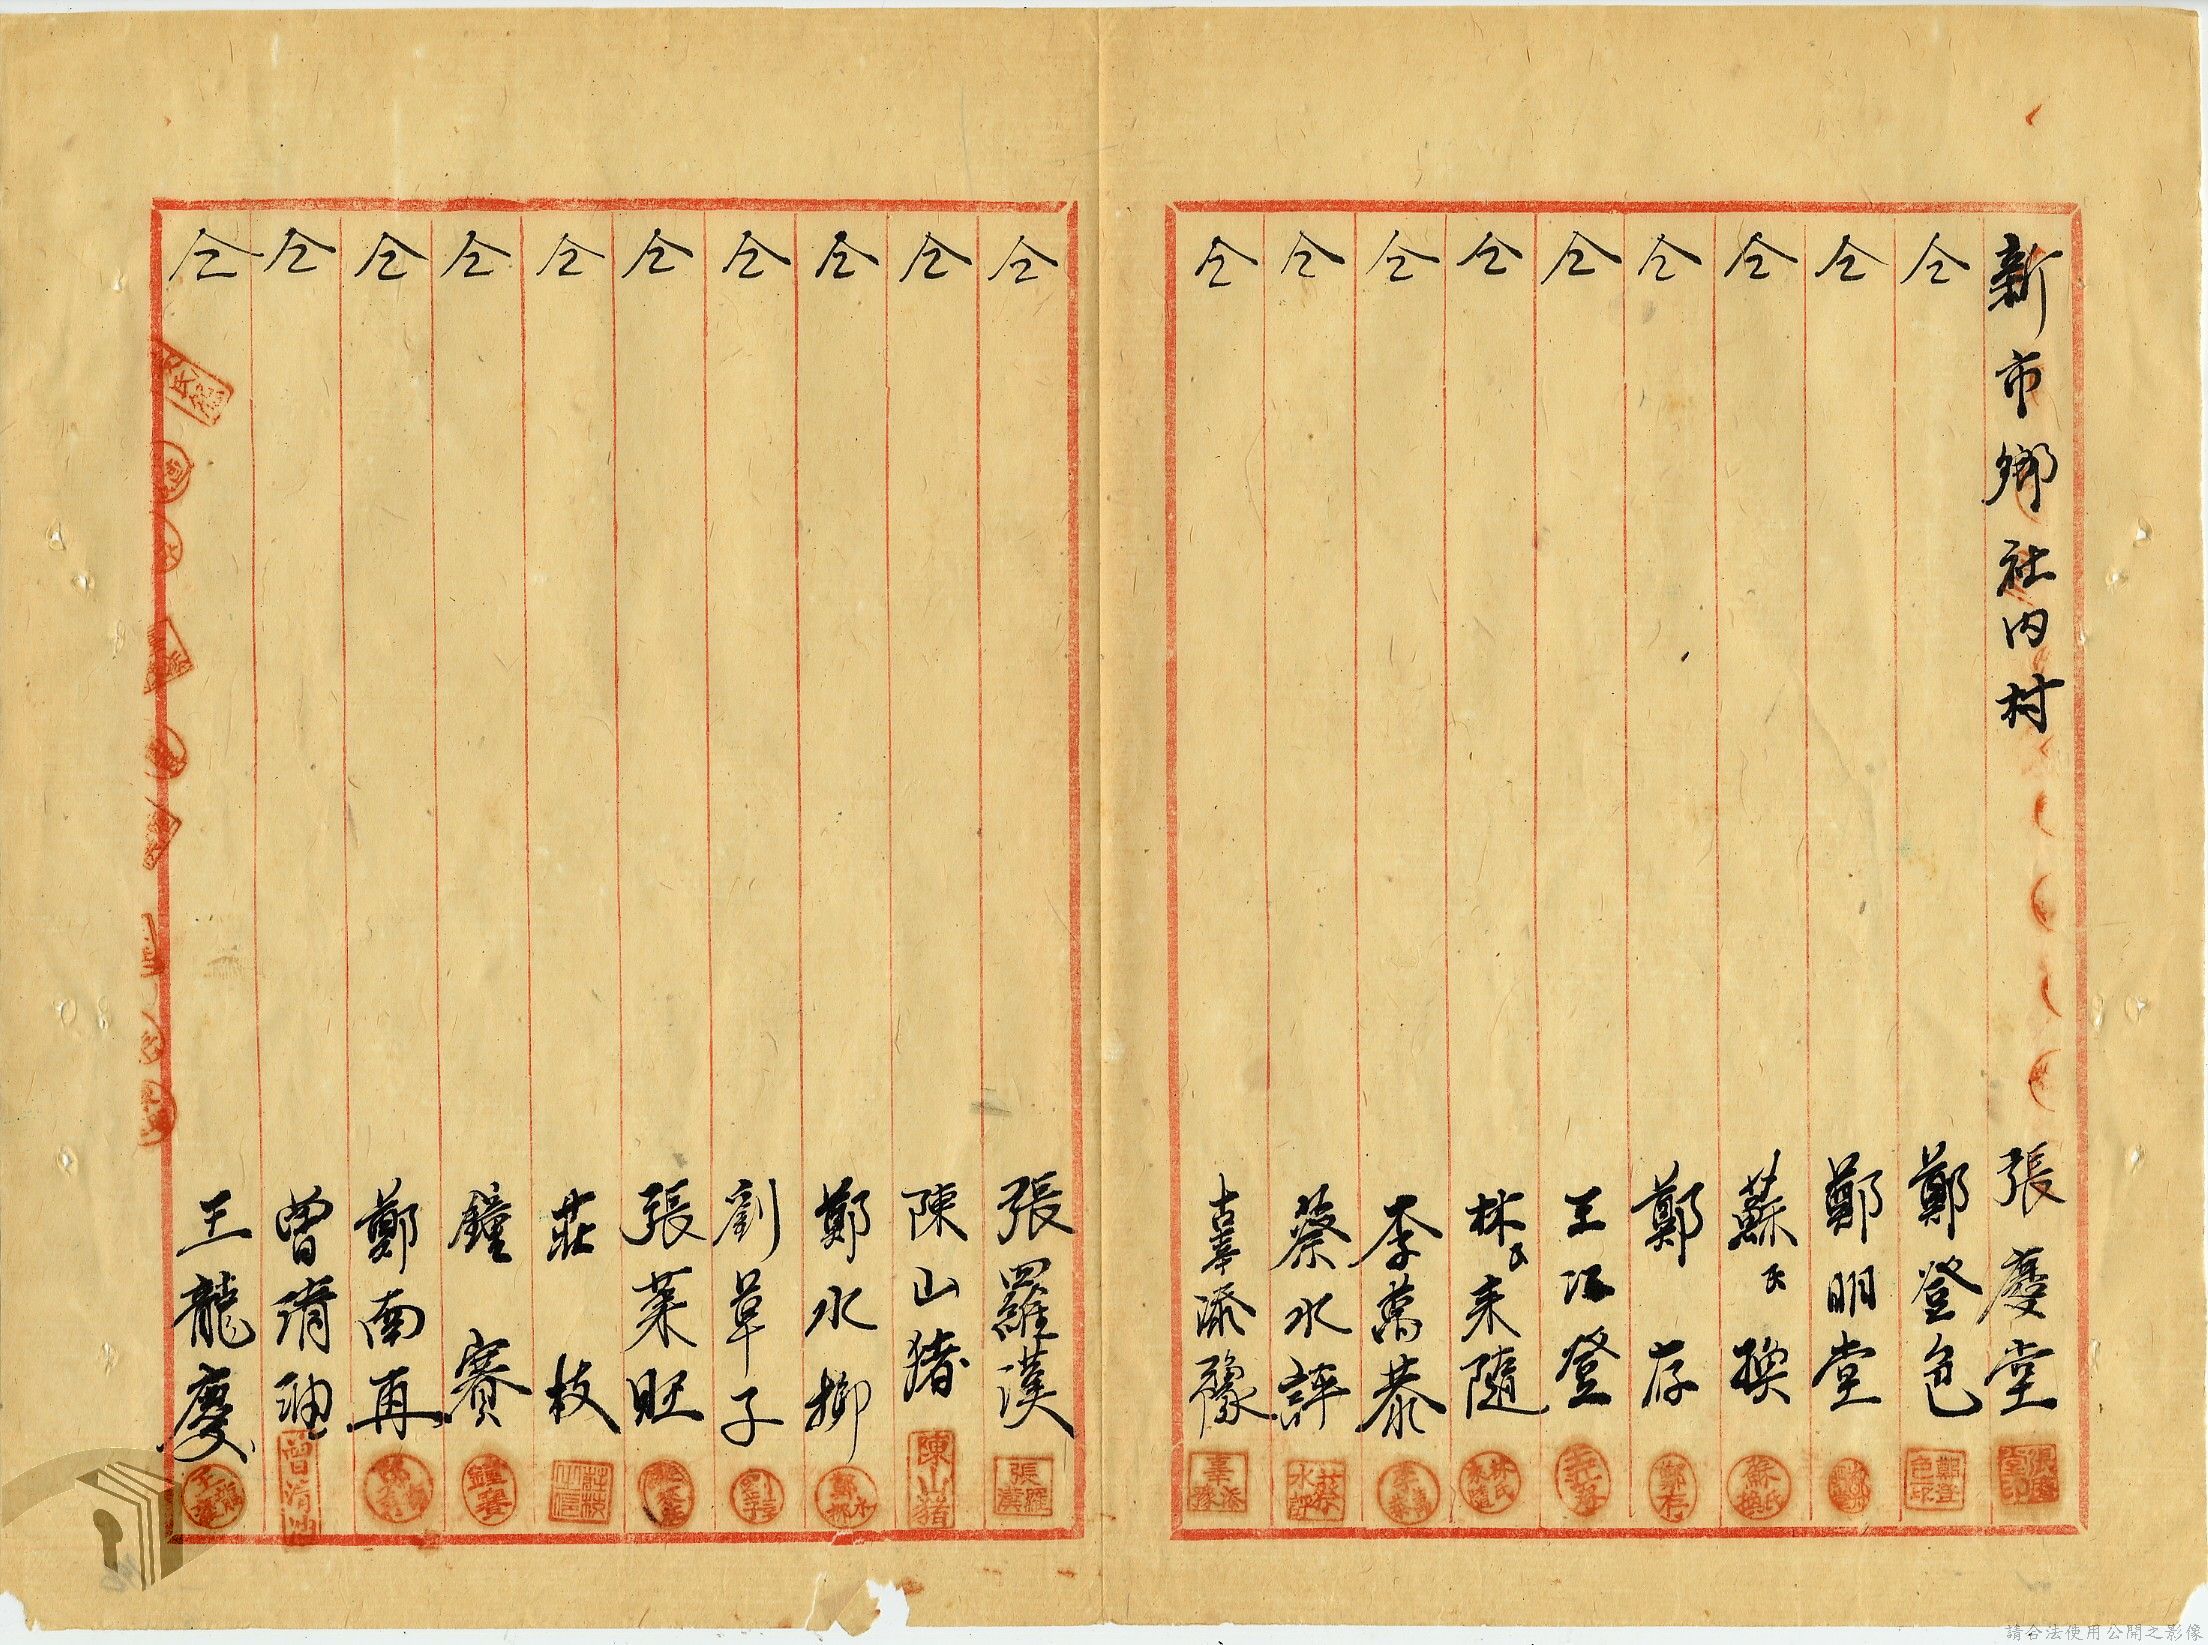 新市鄉社内村 張慶堂
仝 鄭登色
仝 鄭明堂
仝 蘇氏換
仝 鄭存
仝 王江登
仝 林氏来隨
仝 李萬恭
仝 蔡水評
仝 辜添
仝 張羅漢
仝 陳山猪
仝 鄭水柳
仝 劉草子
仝 張菜旺
仝 莊枝
仝 鐘賽
仝 鄭南再
仝 曾清
仝 王龍慶
張羅漢
陳山猪
鄭存
請合法使用公開之影像